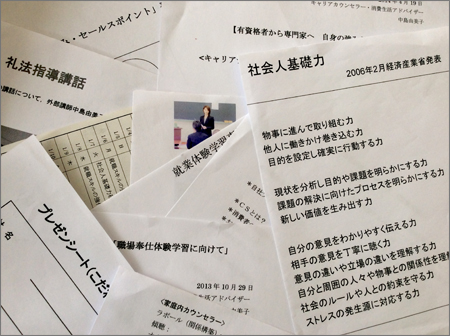 ・セールスポイント」
2014年4月19日
【有資格者から専門家へ 自身の
キャリアカウンセラー・消費生活アドバイザー
中島由美子
<キャリア
礼法指導講話
講話」について、外部講師中島由
就業体験学習
＊自社
＊ＣＳとは
＊消費者
プレゼンシート（こだ
名
【職場奉仕体験学習に向けて】
2013年10月29日
生活アドバイザー
<家庭内カウンセラー>
ラポール（関係構築）
傾聴
社会人基礎力
2006年2月経済産業省発表
物事に進んで取り組む力
他人に働きかけ巻き込む力
目的を設定し確実に行動する力
現状を分析し目的や課題を明らかにする力
課題の解決に向けたプロセスを明らかにする力
新しい価値を生み出す力
自分の意見をわかりやすく伝える力
相手の意見を丁寧に聴く力
意見の違いや立場の違いを理解する力
自分と周囲の人々や物事との関係性を理解
社会のルールや人との約束を守る力
ストレスの発生源に対応する力